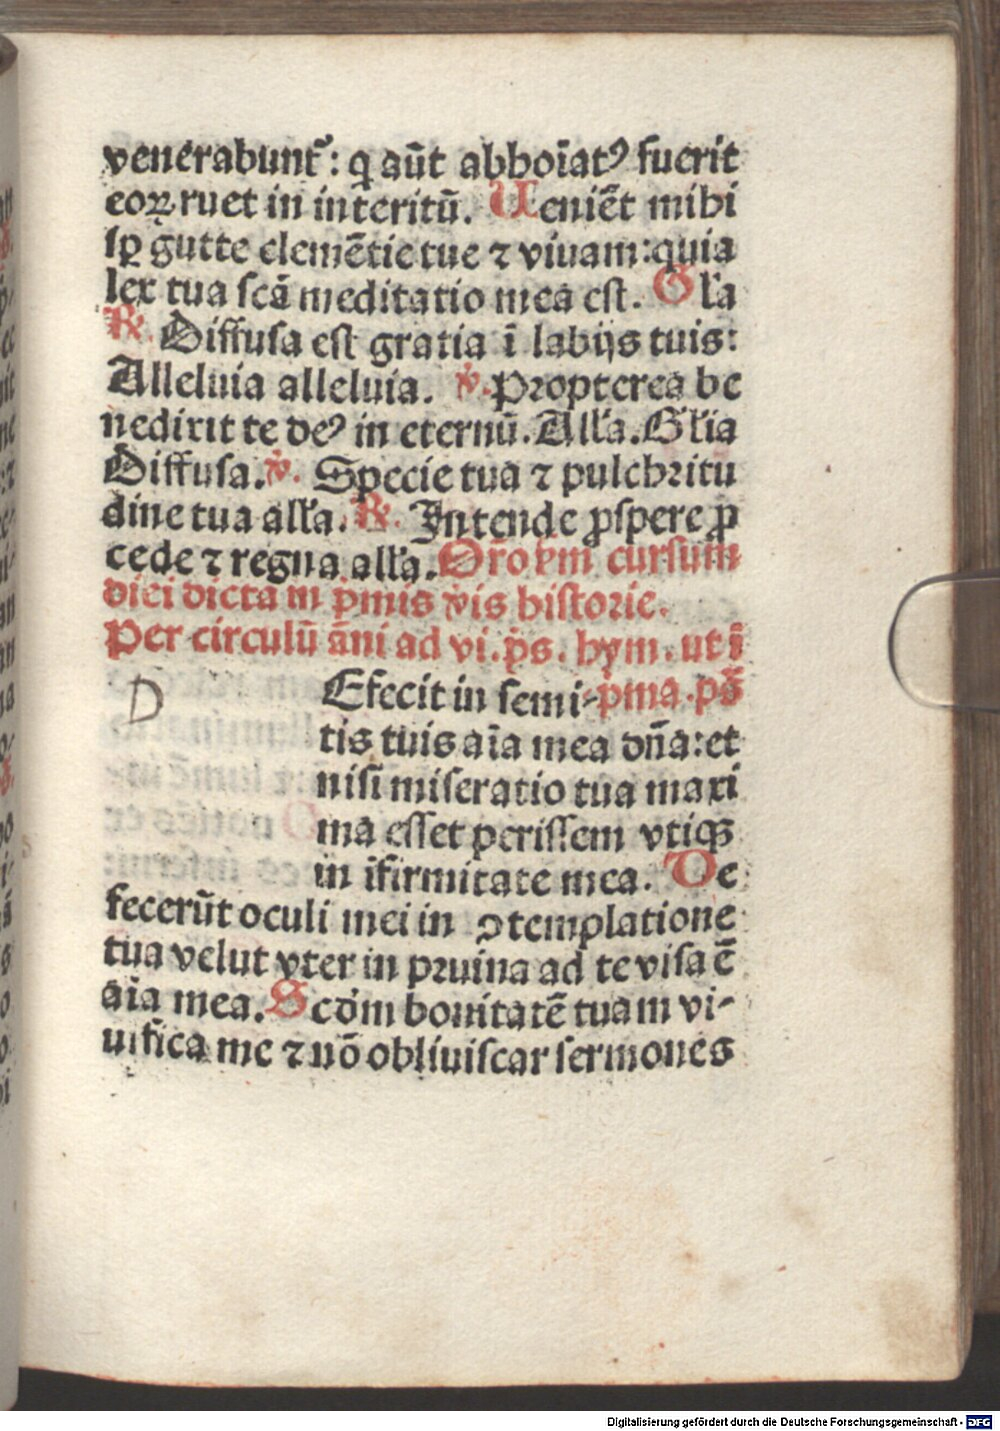 venerabunt᷑: q aūt abhoīatꝰ fuerit
eoꝝ ruet in interitū. Ueniēt mihi
sꝑ gutte clemētie tue ⁊ viuam: quia
lex tua scā meditatio mea est. Gl'a
℟. Diffusa est gratia ī labijs tuis:
Alleluia alleluia. ℣. Propterea be
nedixit te deꝰ in eternū. All'a. Gl'ia
Diffusa. ℣. Specie tua ⁊ pulchꝛitu
dine tua all'a. ℟. Intende ꝓspere ꝓ
cede ⁊ regna all'a. Oro km cursum
diei dicta in p̄mis v̄is historie.
Per circulū āni ad vi. p̄s. hym. ut ī
D Efecit in semi- pma. ps̄
tis tuis aīa mea dn̄a: et
nisi miseratio tua maxi
ma esset perissem vtiqꝫ
in īfirmitate mea. De
fecerūt oculi mei in ꝯtemplatione
tua velut vter in pꝛuina ad te visa ē
aīa mea. Scdm bonitatē tuam vi-
uifica me ⁊ nō obliuiscar sermones
Digitalisierung gefördert durch die Deutsche Forschungsgemeinschaft - DFG